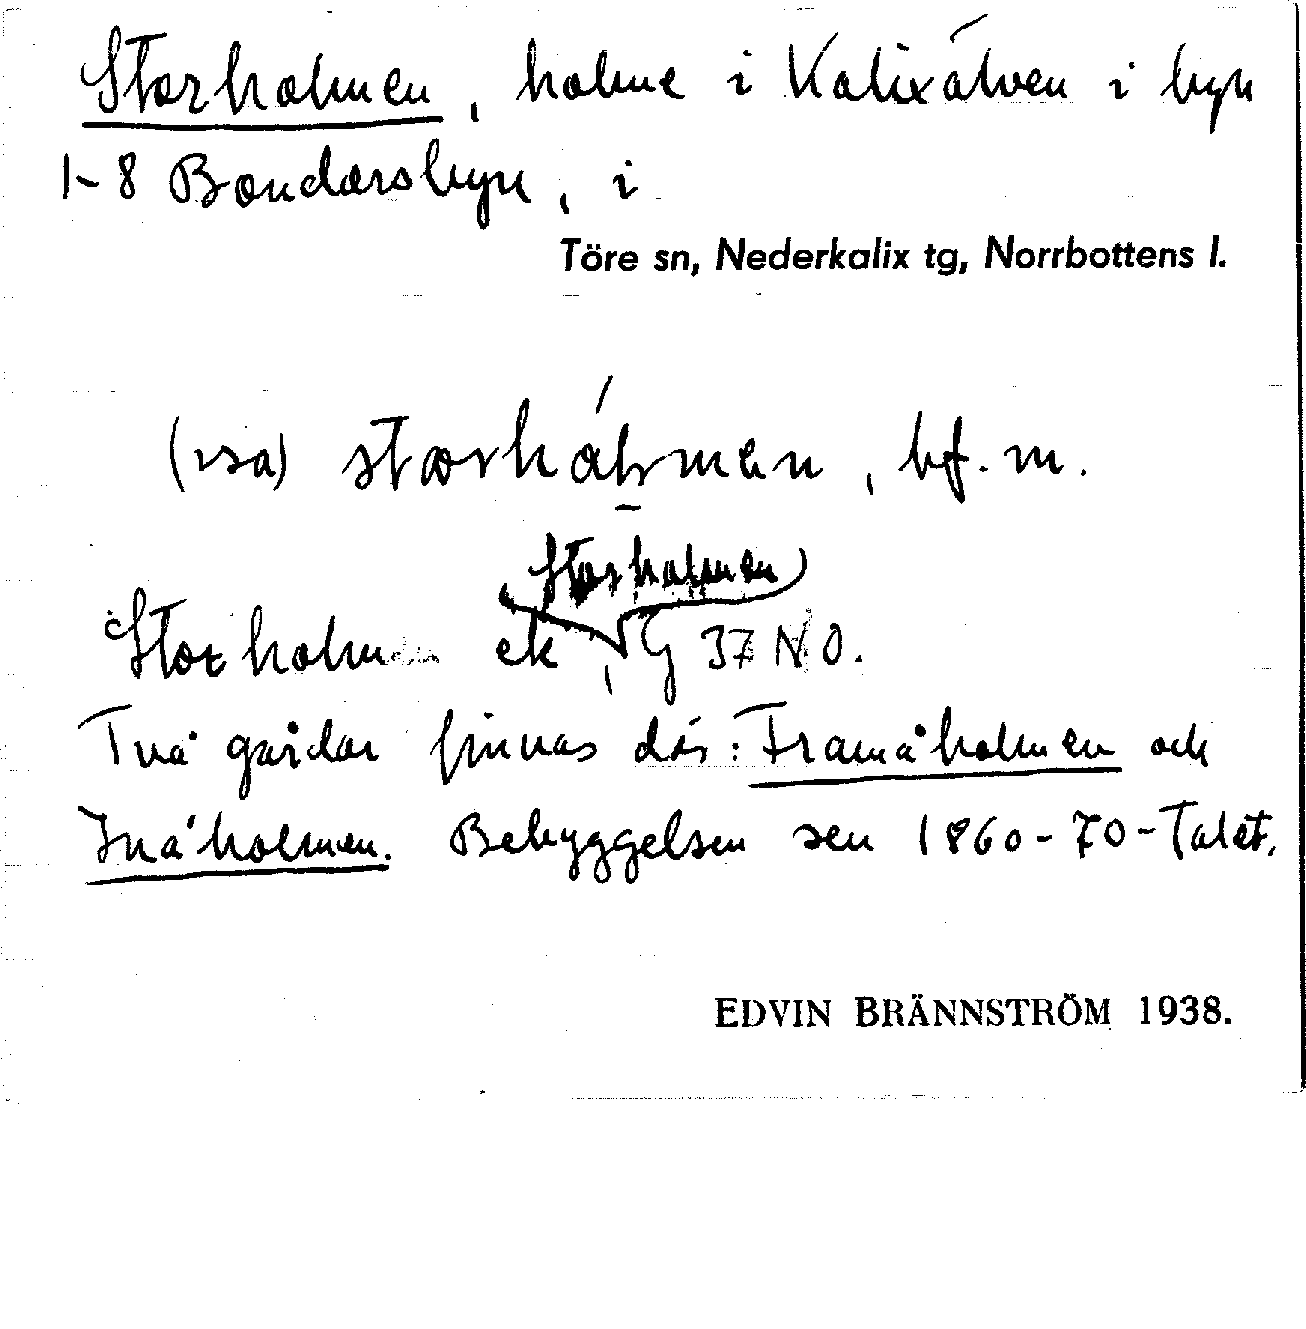 Storholmen, holme i Kalixälven i byn
1-8 Bondersbyn, i
Töre sn, Nederkalix tg, Norrbottens l.
(ɩsa) storhȧɫmən, bf. m.
Storholmen
Storholmen ek, G 37 NO.
Två gårdar finnas där: Framåholmen och
Inåholmen. Bebyggelsen sen 1860-70-talet.
EDVIN BRÄNNSTRÖM 1938.